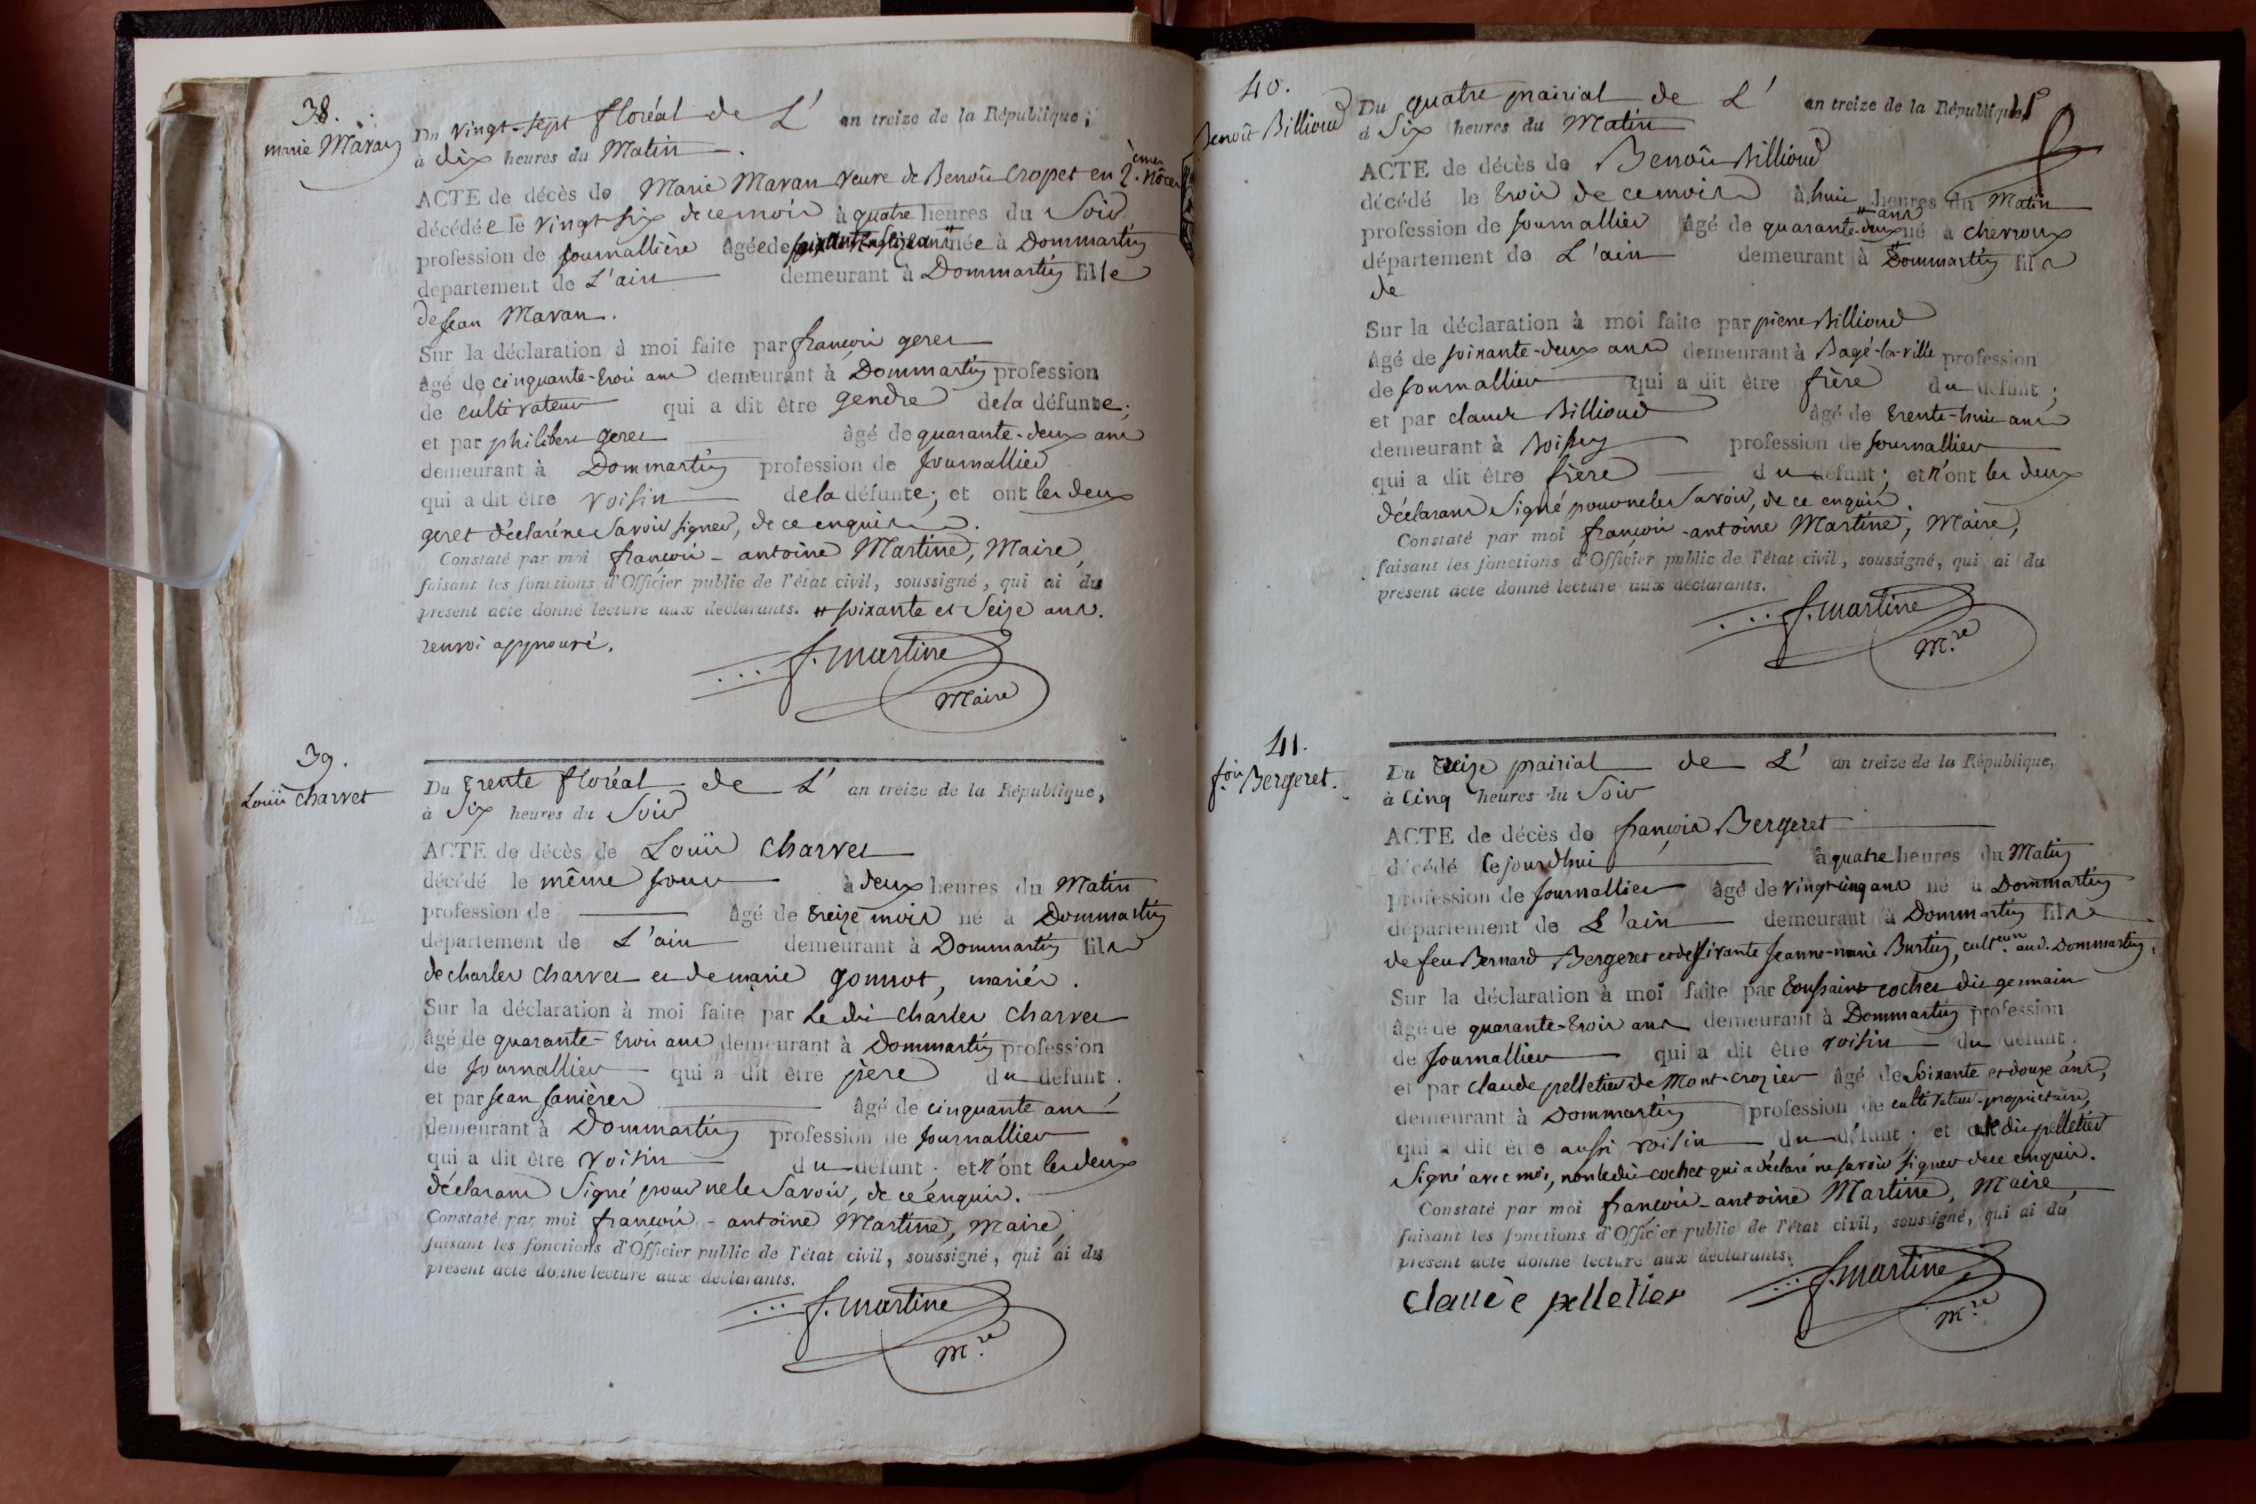 38.
marie Maran
Du vingt-sept floréal de L' an treize de la République;
à dix heures du Matin.
ACTE de décès de Marie Maran veuve de Benoît Cropet en 2.èmes nôces
décédée le vingt-six de ce mois à quatre heures du Soir
profession de journallière âgée de née à Dommartin
département de L'ain demeurant à Dommartin fille
de jean Maran.
Sur la déclaration à moi faite par françois geret
âgé de cinquante-trois ans demeurant à Dommartin profession
de cultivateur qui a dit être gendre de la défunte;
et par philibert geret âgé de quarante-deux ans
demeurant à Dommartin profession de journallier
qui a dit être voisin de la défunte; et ont les deux
geret déclaré ne savoir signer, de ce enquis.
Constaté par moi françois-antoine Martine, Maire,
faisant les fonctions d'Officier public de l'état civil, soussigné, qui ai du
présent acte donné lecture aux déclarants. # soixante et seize ans.
renvoi approuvé.
f. martine
Maire
39.
Louis charvet
Du trente floréal de L' an treize de la République,
à six heures du Soir
ACTE de décès de Louis charvet
décédé le même jour à deux heures du Matin
profession de âgé de treize mois né à Dommartin
département de L'ain demeurant à Dommartin fils
de charles charvet et de marie gonnot, mariés.
Sur la déclaration à moi faite par Le dit charles charvet
âgé de quarante-trois ans demeurant à Dommartin profession
de journallier qui a dit être père du défunt.
et par jean janières âgé de cinquante ans
demeurant à Dommartin profession de journallier
qui a dit être voisin du défunt. et n'ont les deux
déclarans signé pour ne le savoir, de ce enquis.
Constaté par moi françois-antoine Martine, Maire,
faisant les fonctions d'Officier public de l'état civil, soussigné, qui ai du
présent acte donné lecture aux déclarants.
f. martine
m.re
40.
Benoît Billioud
Du quatre prairial de L' an treize de la République,
à six heures du Matin
ACTE de décès de Benoît Billioud
décédé le trois de ce mois à huit heures du Matin
profession de journallier âgé de quarante-deux ans né à chevroux
département de L'ain demeurant à Dommartin fils
de
Sur la déclaration à moi faite par pierre Billioud
âgé de soixante-deux ans demeurant à Bagé-la-ville profession
de journallier qui a dit être frère du défunt;
et par claude Billioud âgé de trente-huit ans
demeurant à Boissey profession de journallier
qui a dit être frère du défunt; et n'ont les deux
déclarans signé pour ne le savoir, de ce enquis.
Constaté par moi françois-antoine Martine, Maire,
faisant les fonctions d'Officier public de l'état civil, soussigné, qui ai du
présent acte donné lecture aux déclarants.
f. martine
m.re
41.
f.ois Bergeret.
Du treize prairial de L' an treize de la République,
à cinq heures du Soir
ACTE de décès de françois Bergeret
décédé cejourdhui à quatre heures du Matin
profession de journallier âgé de vingt-cinq ans né à Dommartin
département de L'ain demeurant à Dommartin fils
de feu Bernard Bergeret et de vivante jeanne-marie Burtin, cult.eurs aud. Dommartin.
Sur la déclaration à moi faite par toussaint cochet dit germain
âgé de quarante-trois ans demeurant à Dommartin profession
de journallier qui a dit être voisin du défunt,
et par claude pelletier de Mont-crozier âgé de soixante et douze ans,
demeurant à Dommartin profession de cultivateur-propriétaire,
qui a dit être aussi voisin du défunt; et a le dit pelletier
signé avec moi, non ledit cochet qui a déclaré ne savoir signer de ce enquis.
Constaté par moi françois-antoine Martine, Maire,
faisant les fonctions d'Officier public de l'état civil, soussigné, qui ai du
présent acte donné lecture aux déclarants.
claude pelletier
f. martine
m.re